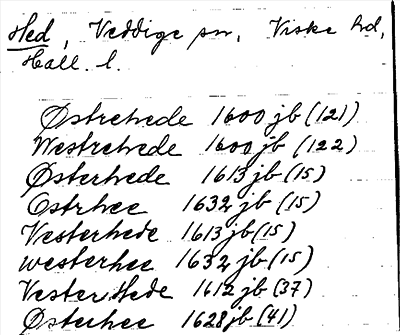 Hed, Veddige sn, Viske hd,
Hall. l.
Østrehede 1600 jb (121)
Westrehede 1600 jb (122)
Østerhede 1613 jb (15)
Ostrhee 1632 jb (15)
Vesterhede 1613 jb (15)
westerhee 1632 jb (15)
Vester Hede 1612 jb (37)
Østerhee 1628 jb (41)